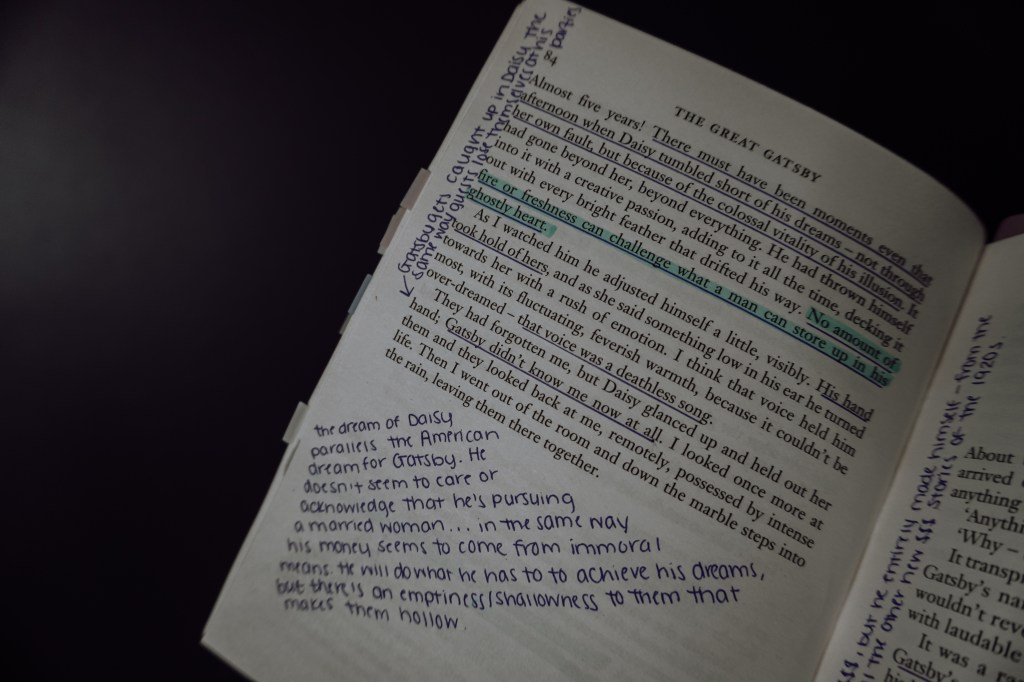 84
THE GREAT GATSBY
Almost five years! There must have been moments even that
afternoon when Daisy tumbled short of his dreams – not through
her own fault, but because of the colossal vitality of his illusion. It
had gone beyond her, beyond everything. He had thrown himself
into it with a creative passion, adding to it all the time, decking it
out with every bright feather that drifted his way. No amount of
fire or freshness can challenge what a man can store up in his
ghostly heart.
As I watched him he adjusted himself a little, visibly. His hand
took hold of hers, and as she said something low in his ear he turned
towards her with a rush of emotion. I think that voice held him
most, with its fluctuating, feverish warmth, because it couldn't be
over-dreamed – that voice was a deathless song.
They had forgotten me, but Daisy glanced up and held out her
hand; Gatsby didn't know me now at all. I looked once more at
them and they looked back at me, remotely, possessed by intense
life. Then I went out of the room and down the marble steps into
the rain, leaving them there together.
Gatsby gets caught up in Daisy the
same way guests lose themselves at his parties
the dream of Daisy
parallels the American
dream for Gatsby. He
doesn't seem to care or
acknowledge that he's pursuing
a married woman... in the same way
his money seems to come from immoral
means. He will do what he has to to achieve his dreams,
but there's an emptiness/shallowness to them that
makes them hollow.
$$$, but he entirely made himself - from the
the other new $$$ stories of the 1920s
About
arrived
anything
'Anyth
'Why –
It transp
Gatsby's na
wouldn't reve
with laudable
It was a ra
Gatsby's